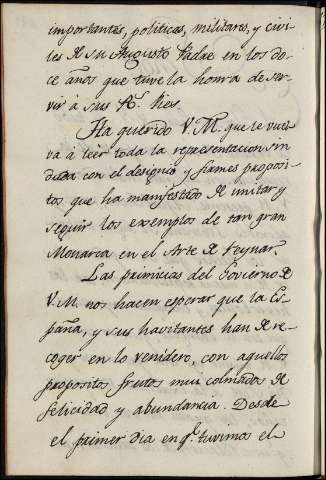 importantes, politicas, militares, y civi-
les de su Augusto Padre en los do-
ce años que tuve la honra de ser-
vir à sus Rs. Pies.
Ha querido V. M. que le vuel-
va á leer toda la representacion sin
duda con el designio y firmes proposi-
tos que ha manifestado de imitar y
seguir los exemplos de tan gran
Monarca en el Arte de Reynar.
Las primicias del Govierno de
V. M. nos hacen esperar que la Es-
paña, y sus havitantes han de re-
coger en lo venidero, con aquellos
propositos frutos mui colmados de
felicidad y abundancia. Desde
el primer dia en q.e tuvimos el